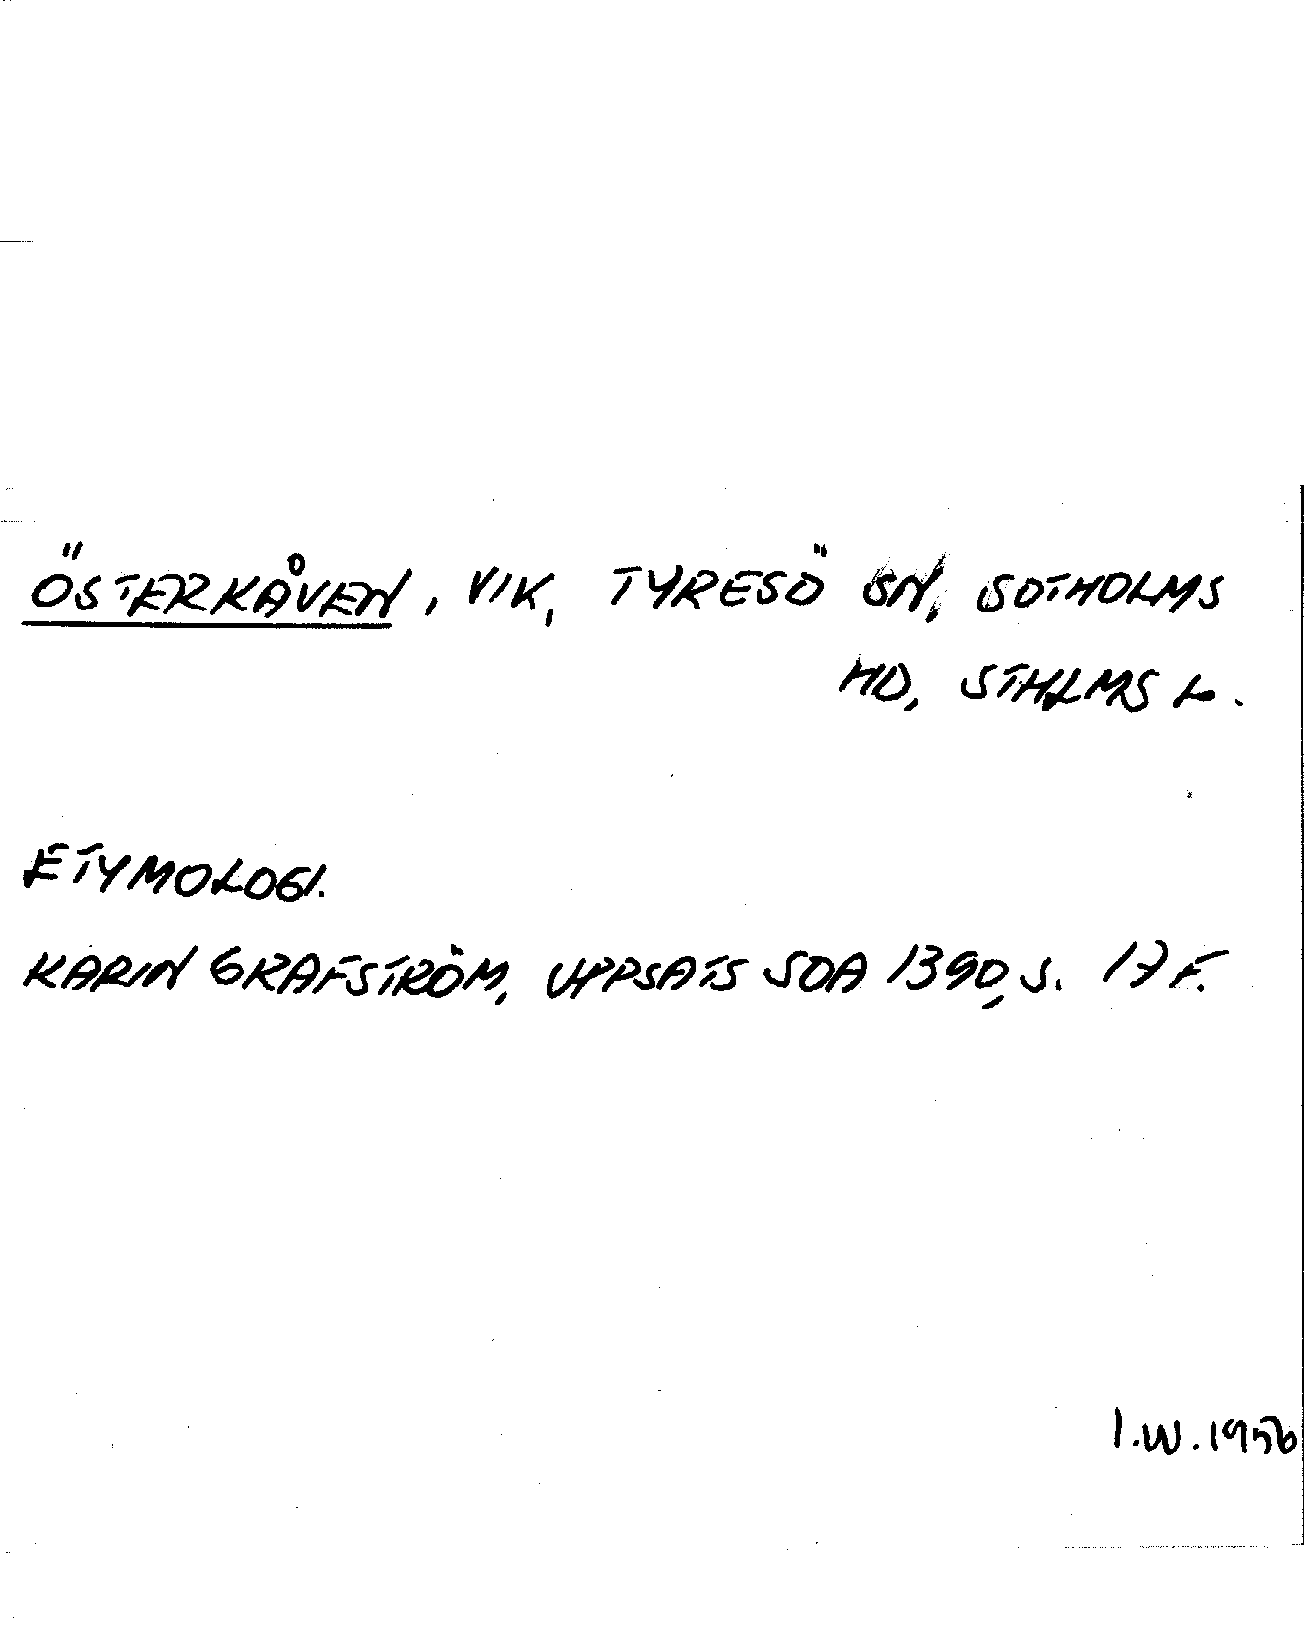 ÖSTERKÅVEN, VIK, TYRESÖ SN, SOTHOLMS
HD, STHLMS L.
ETYMOLOGI.
KARIN GRAFSTRÖM, UPPSATS SOA 1390, S. 17 F.
I.W. 1956